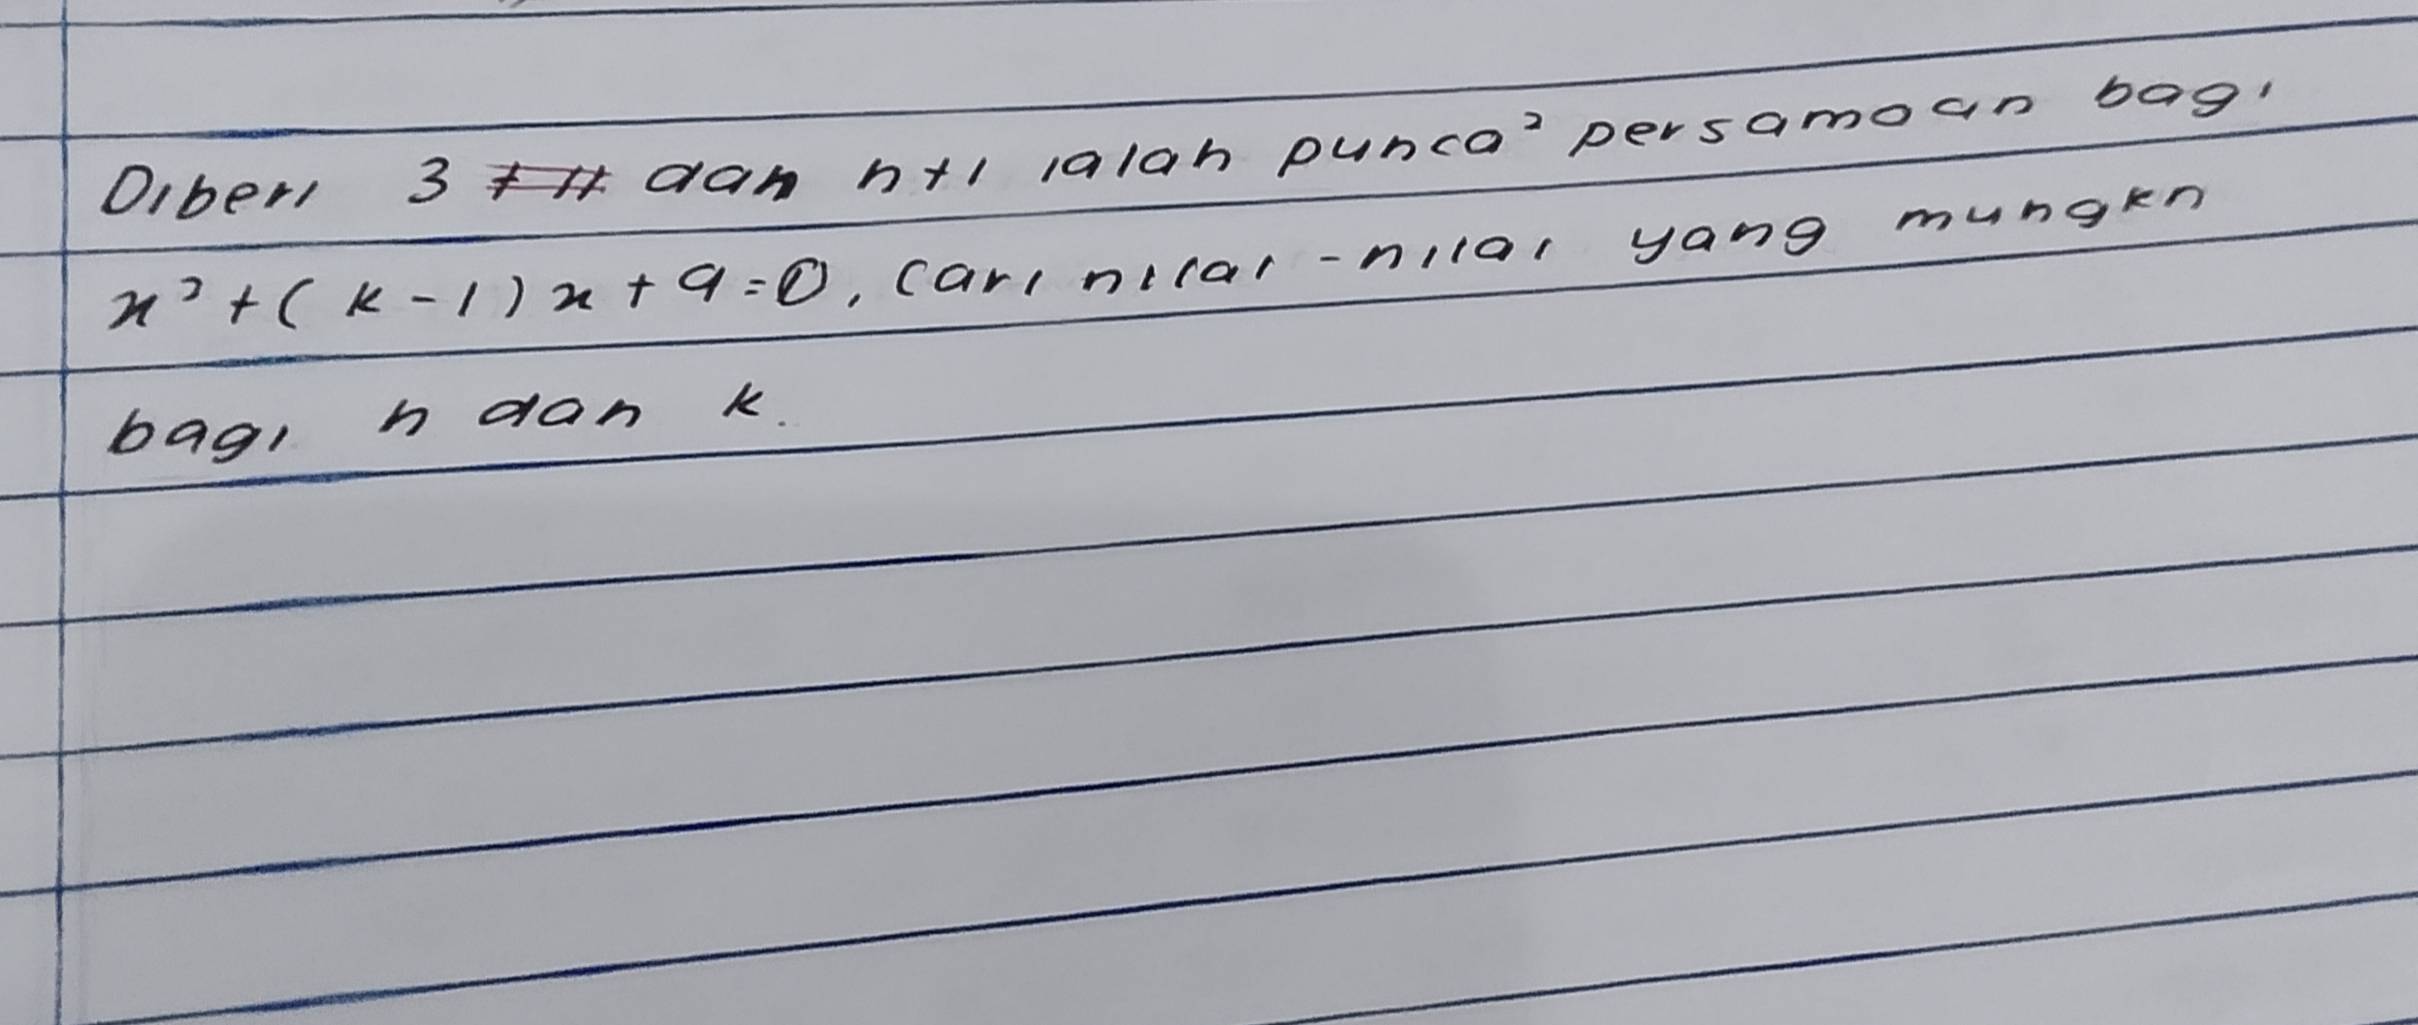 Diberi 3 dan n+1 ialah punca² persamaan bagi
x² + (k-1)x + 9 = 0, cari nilai-nilai yang mungkn
bagi n dan k.